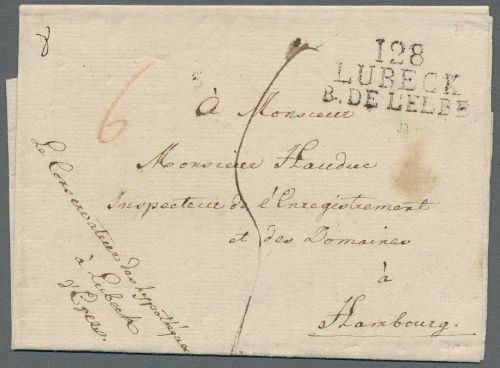 128
LUBECK
B. DE L'ELBE
6
À Monsieur
Monsieur Hauduc
Inspecteur de l'Enregistrement
et des Domaines
à
Hambourg.
Le Conservateur des hypothèques
à Lubeck